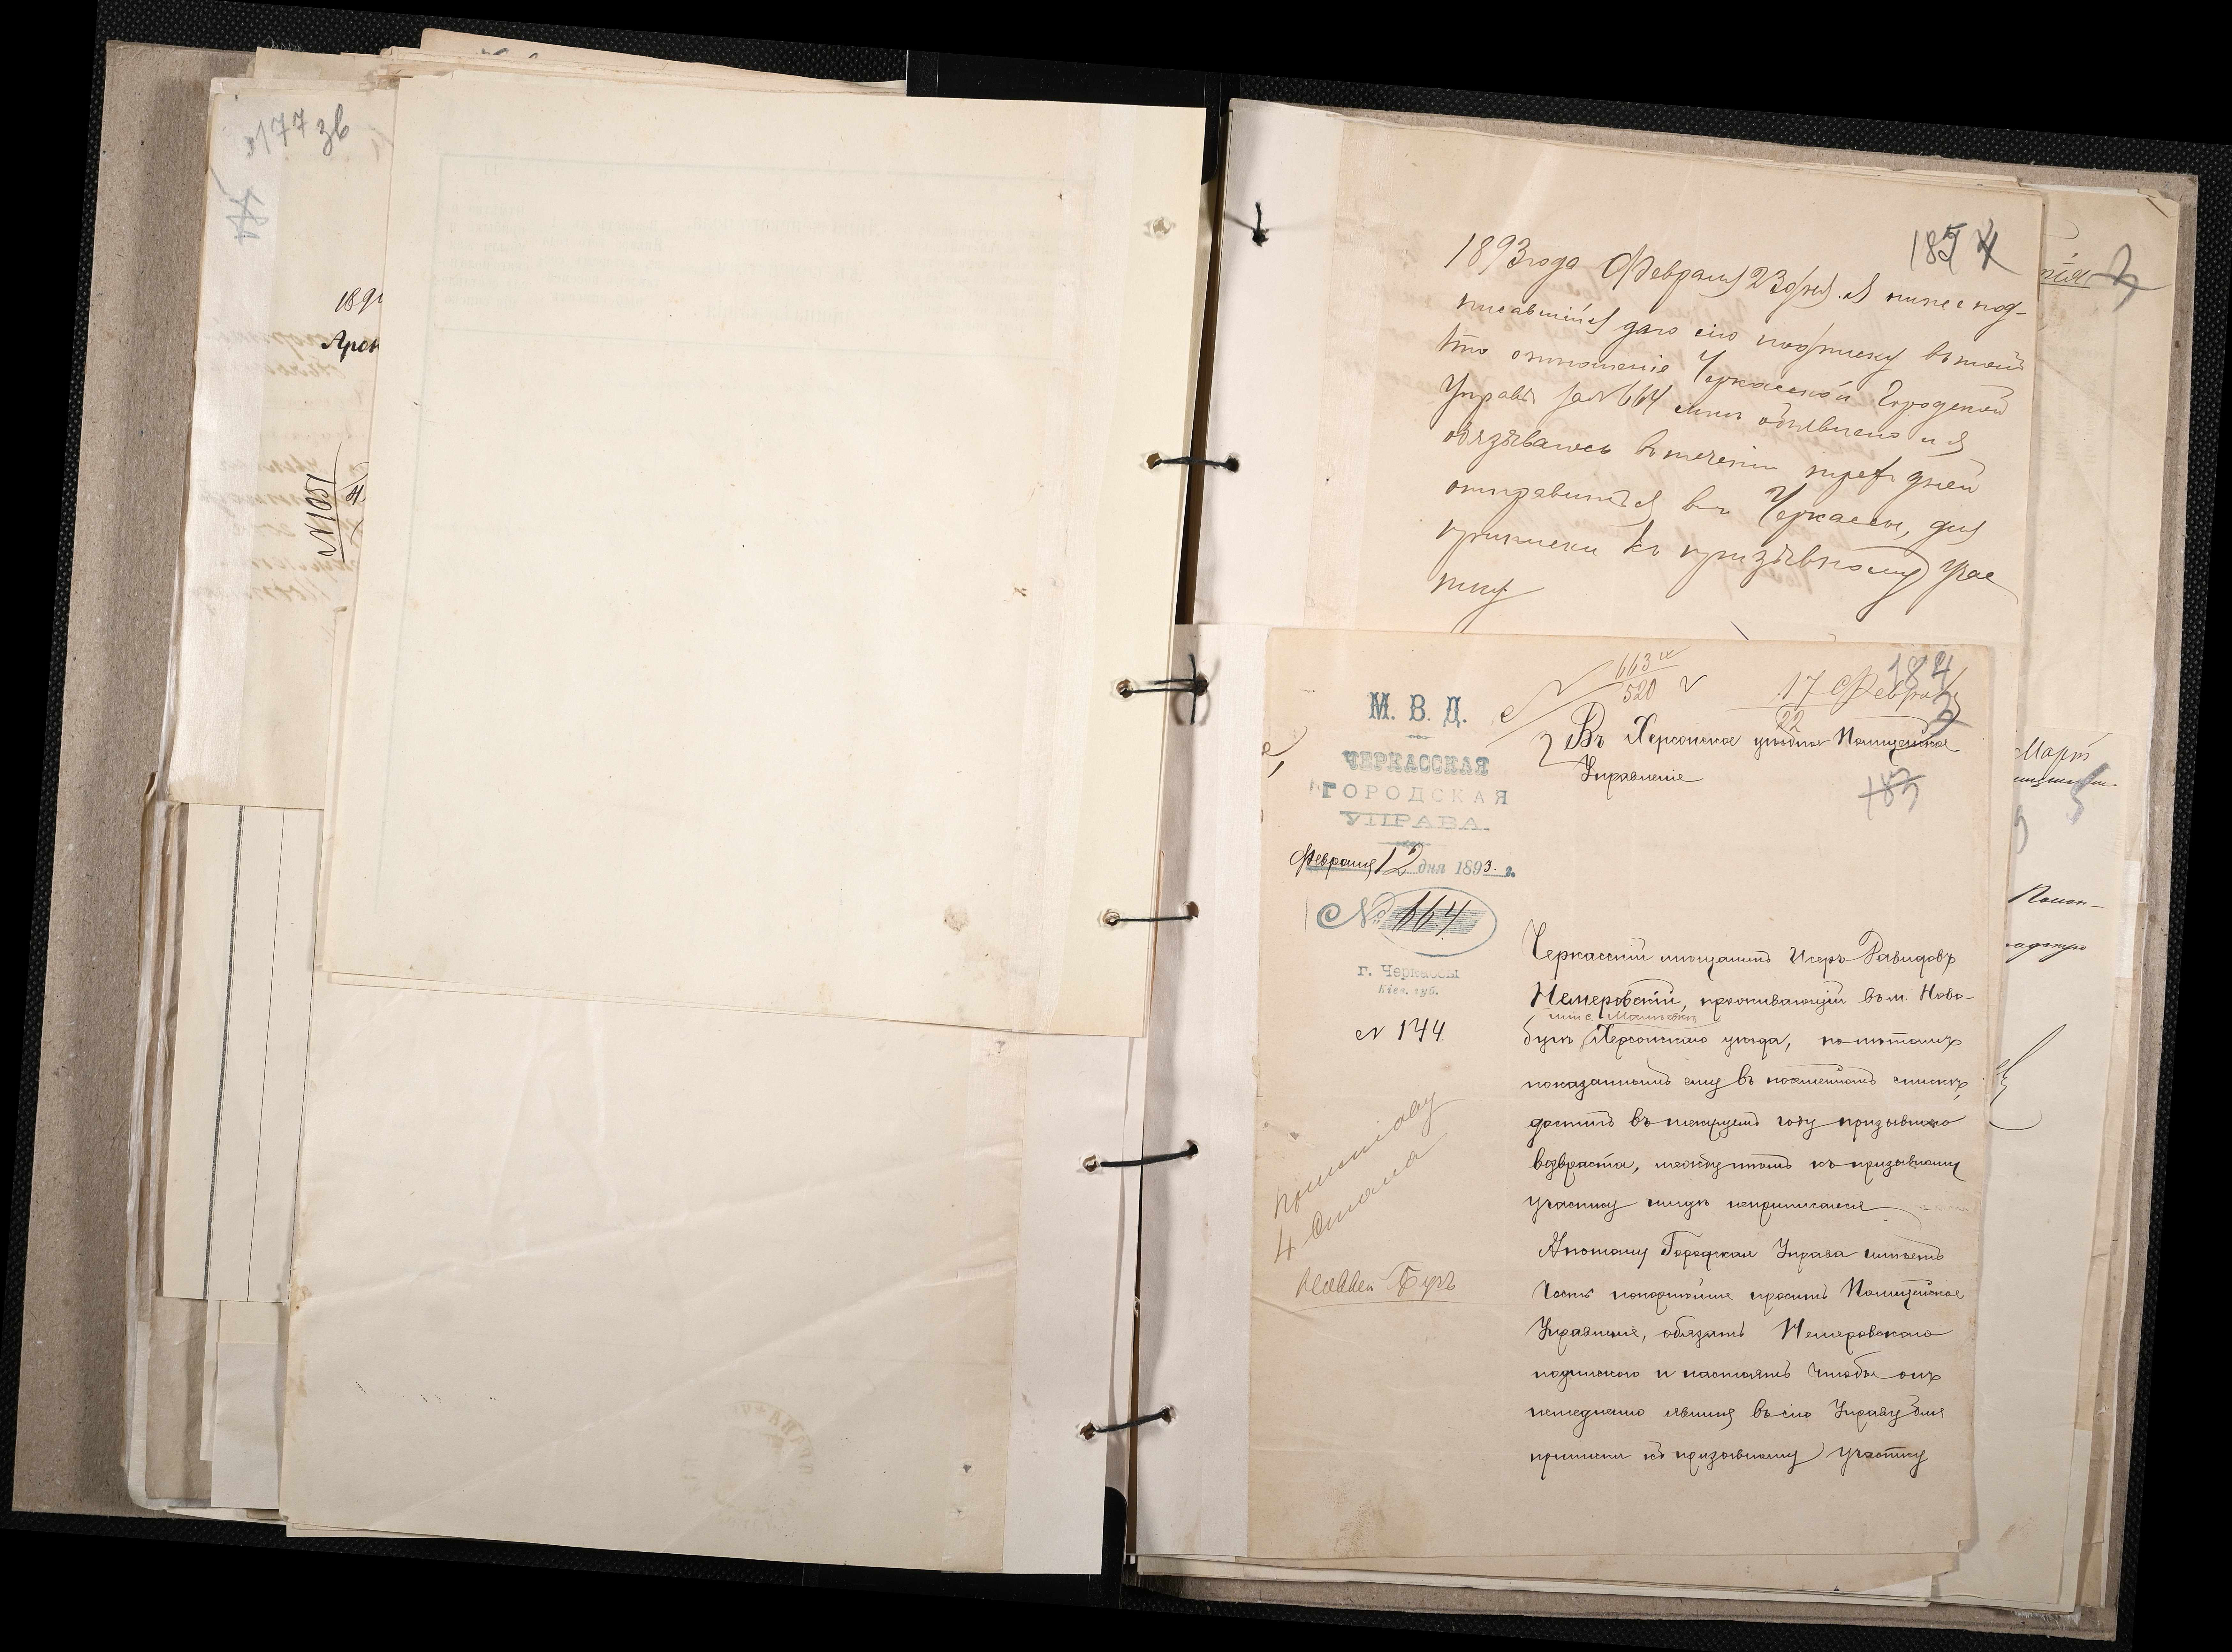 177 зв
189
Арон
№ 1051
4.
185 4
1893 года Февраля 23 дня. Я ниже под-
писавшійся даю сію подписку въ томъ
что отношеніе Черкасской Городской
Управы за № 664 мнѣ объявлено и я
обязываюсь въ теченіи трехъ дней
отправиться въ Черкассы, для
приписки къ призывному учас
тку
663
520
17 Февраля
22
184
М. В. Д.
ЧЕРКАССКАЯ
ГОРОДСКАЯ
УПРАВА.
Февраля 12 дня 1893. г.
№ 664
г. Черкассы
Кіев. губ.
№ 144.
4 Стана
Новый Бугъ
Въ Херсонское уѣздное Полицейское
Управленіе
183
Черкасскій мѣщанинъ Исеръ Давидовъ
Немеровскій, проживающій въ м. Ново-
бугѣ Херсонскаго уѣзда, по лѣтамъ
показаннымъ ему въ посемейномъ спискѣ,
достигъ въ текущемъ году призывнаго
возраста, между тѣмъ къ призывному
участку нигдѣ неприписался
А потому Городская Управа имѣетъ
честь покорнѣйше просить Полицейское
Управленіе, обязать Немеровскаго
подпискою и настоять чтобы онъ
немедленно явился въ сію Управу для
приписки къ призывному участку
Мартъ